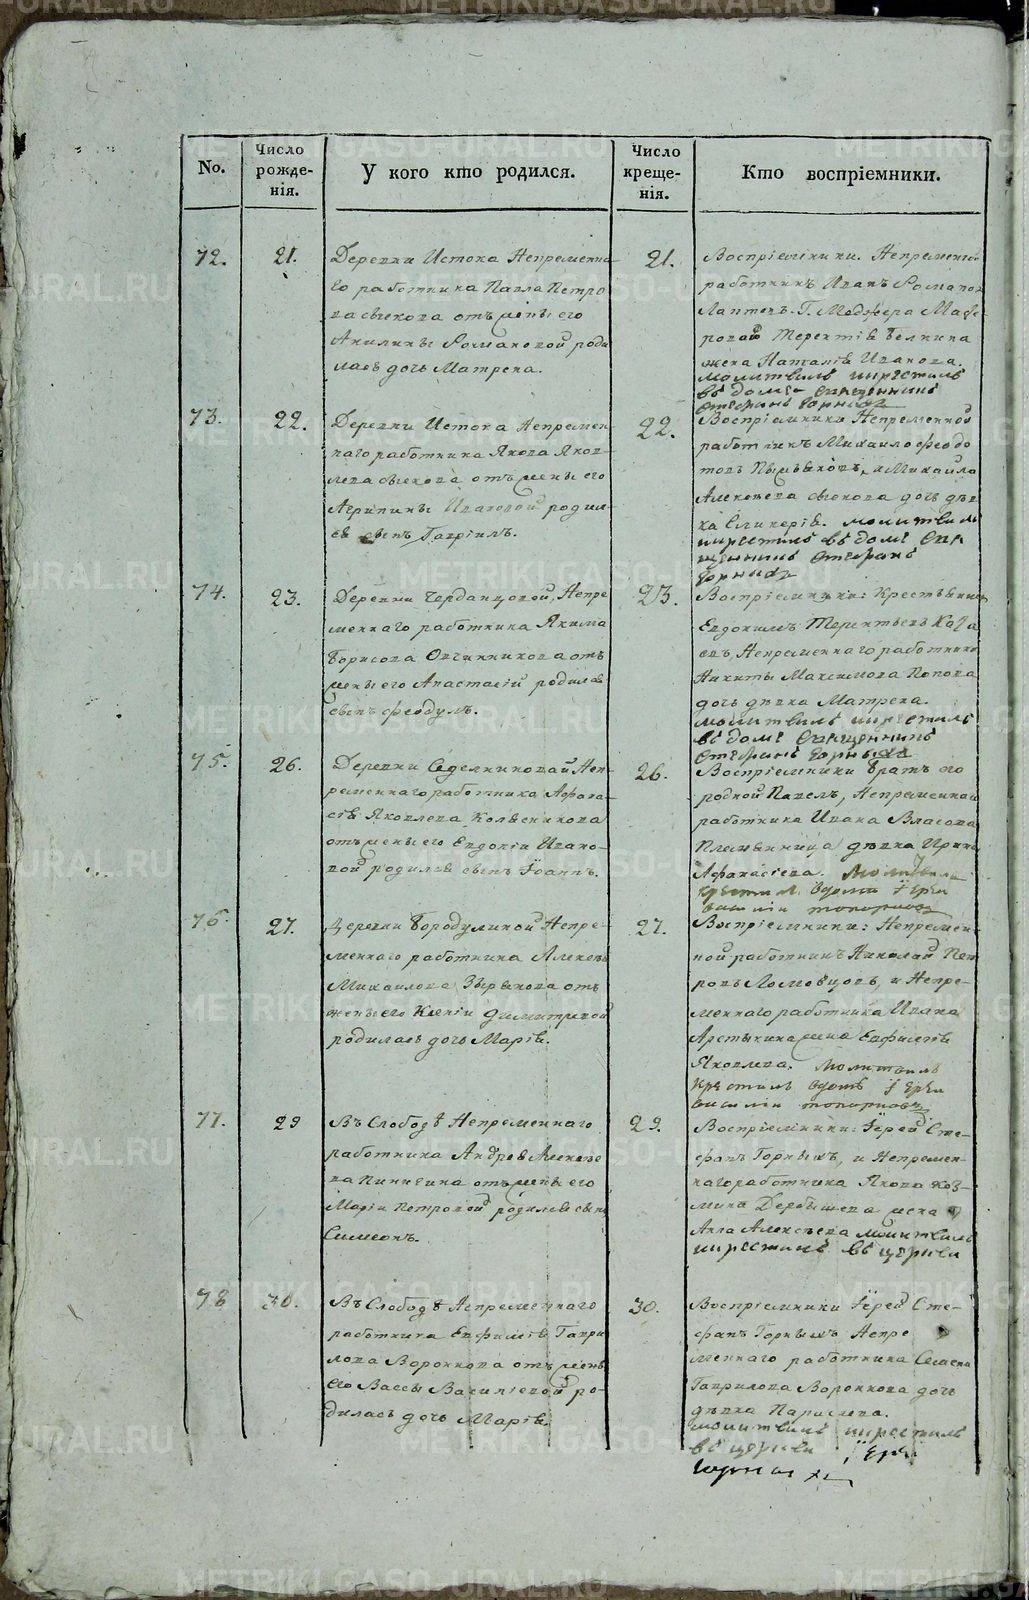 No.
Число рожде-нія.
У кого кто родился.
Число креще-нія.
Кто воспріемники.
72.
21.
Деревни Истока Непременна-
го работника Павла Петро
ва отъ жены его
Акилины Романовой роди
лась дочь Матрена.
21.
Воспріемники. Непременной
работникъ Иванъ Романов
Лаптевъ. Г. Маджера
Терентія Белкина
жена Наталія Иванова.
молитвилъ и крестилъ
въ доме священникъ
Стефанъ Горныхъ
73.
22.
Деревни Истока Непремен
наго работника Якова Яков
лева отъ жены его
Агрипины Ивановой родил-
ся сынъ Гавріилъ.
22.
Воспріемники Непременной
работникъ Михайло Федо
товъ и Михайла
Алексеева дочь дев
ка Гликерія. молитвилъ
и крестилъ въ доме Свя
щенникъ Стефанъ
Горныхъ
74.
23.
Деревни Черданцовой, Непре
меннаго работника Якима
Борисова Овчинникова отъ
жены его Анастасіи родился
сынъ Феодулъ.
23.
Воспріемники: Крестьянинъ
Евдокимъ Терентьевъ
Непременнаго работника
Никиты Максимова Попова
дочь девка Матрена.
молитвилъ и крестилъ
въ доме Священникъ
Стефанъ Горныхъ
75.
26.
Деревни Седелниковай Неп-
ременнаго работника Афана-
сія Яковлева Колесникова
отъ жены его Евдокіи Ивано-
вой родился сынъ Іоаннъ.
26.
Воспріемники Братъ его
родной Павелъ, Непременнаго
работника Ивана Власова
Племянница девка Ирина
Афанасіева. Молитвилъ
крестил вдоме Іерей
Василіи Топорковъ
76.
27.
Деревни Бородулиной Непре-
меннаго работника Алексея
Михайлова Зырянова отъ
жены его Ксеніи Димитревой
родилась дочь Марія.
27.
Воспріемники: Непремен-
ной работникъ Николай Пет
ровъ Ломовцовъ, и Непре-
меннаго работника Ивана
жена Евфимія
Яковлева. Молитвилъ
Крестилъ вдоме Іерей
Василіи Топорковъ
77.
29
Въ Слободе Непременнаго
работника Андрея Алексее
ва Пинигина отъ жены его
Маріи Петровой родился сынъ
Симеонъ.
29.
Воспріемники: Іерей Сте-
фанъ Горныхъ, и Непремен-
наго работника Якова Коз-
мина Дербышева жена
Анна Алексеева молитвилъ
и крестилъ въ церкви
78
30.
Въ Слободе Непременнаго
работника Евфимія Гаври
лова Воронкова отъ жены
его Вассы Василіевой ро-
дилась дочь Марія.
30.
Воспріемники Іерей Сте-
фанъ Горныхъ Непре
меннаго работника Семена
Гаврилова Воронкова дочь
девка
молитвилъ и крестилъ
въ церкви Іерей
Горныхъ
METRIKI.GASO-URAL.RU